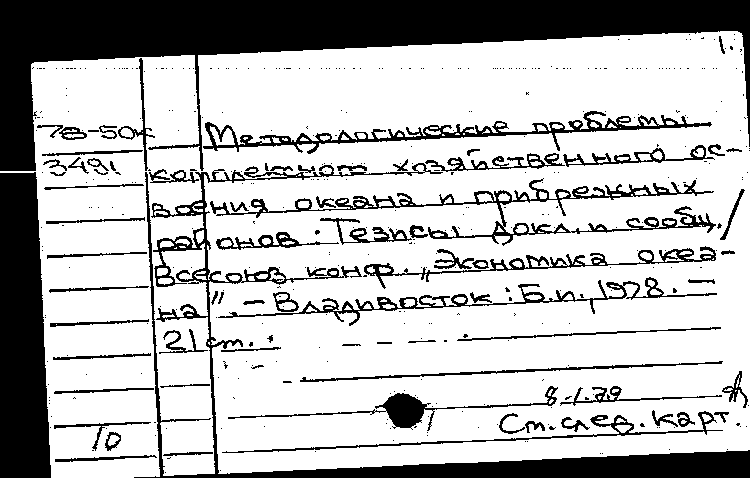 1.
78-50к Методологические проблемы
3491 комплексного хозяйственного ос-
воения океана и прибрежных
районов: Тезисы докл. и сообщ. /
Всесоюз. конф. „Экономика океа-
на". – Владивосток: Б.и., 1978. –
21 см.
8-1.79
10 См. след. карт.